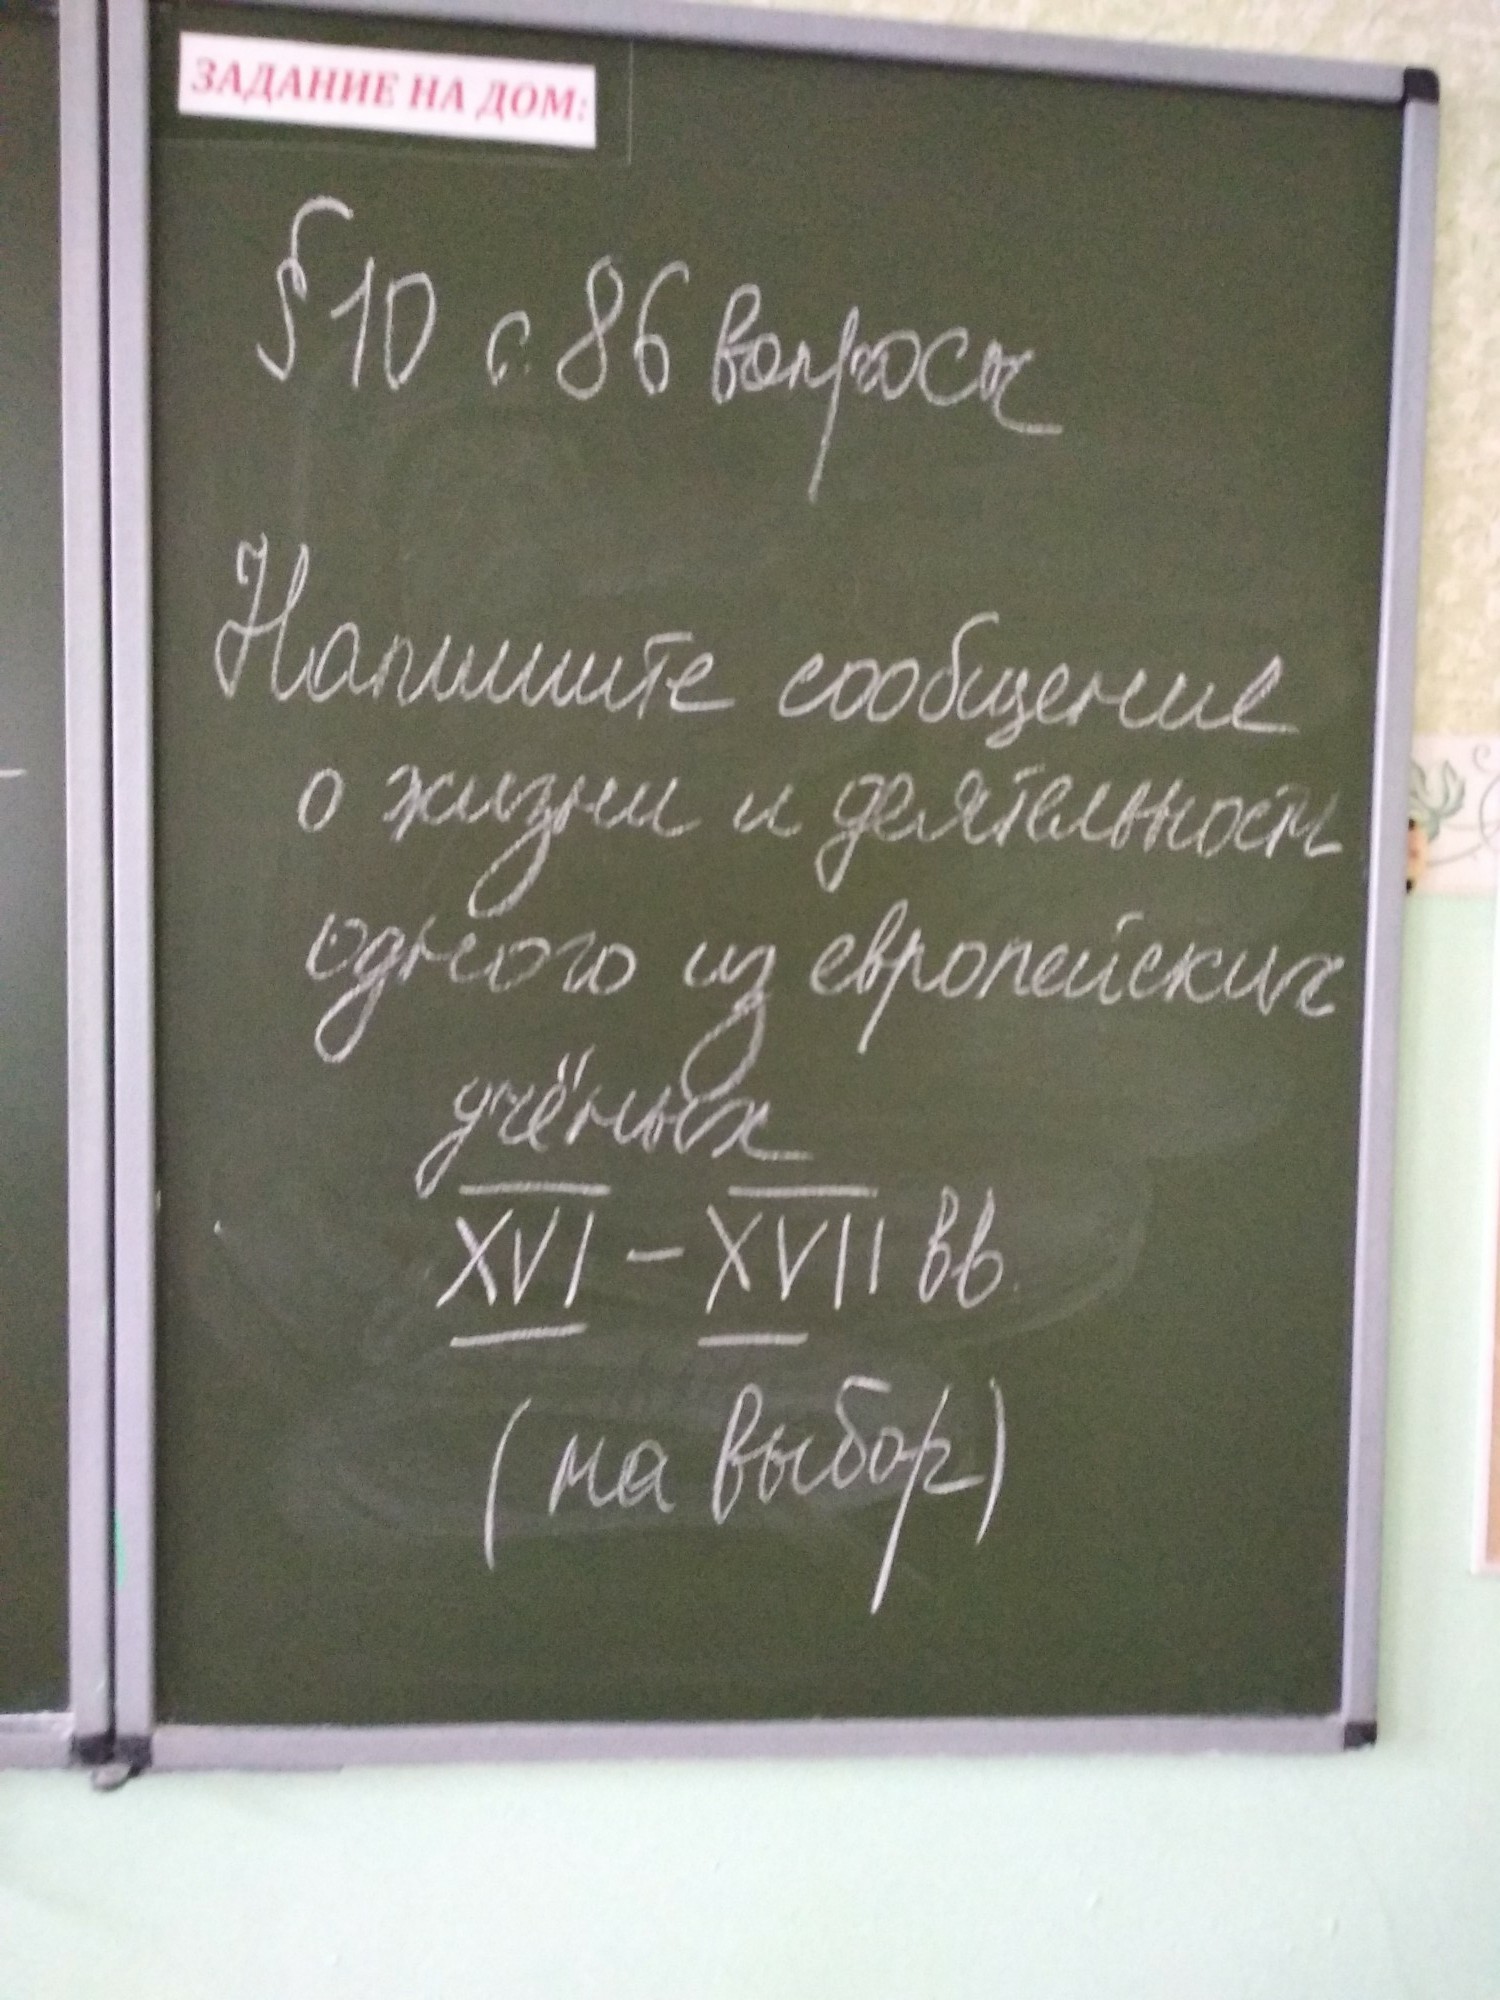 ЗАДАНИЕ НА ДОМ:
§10 с. 86 вопросы
Напишите сообщение
о жизни и деятельности
одного из европейских
учёных
XVI - XVII вв.
(на выбор)